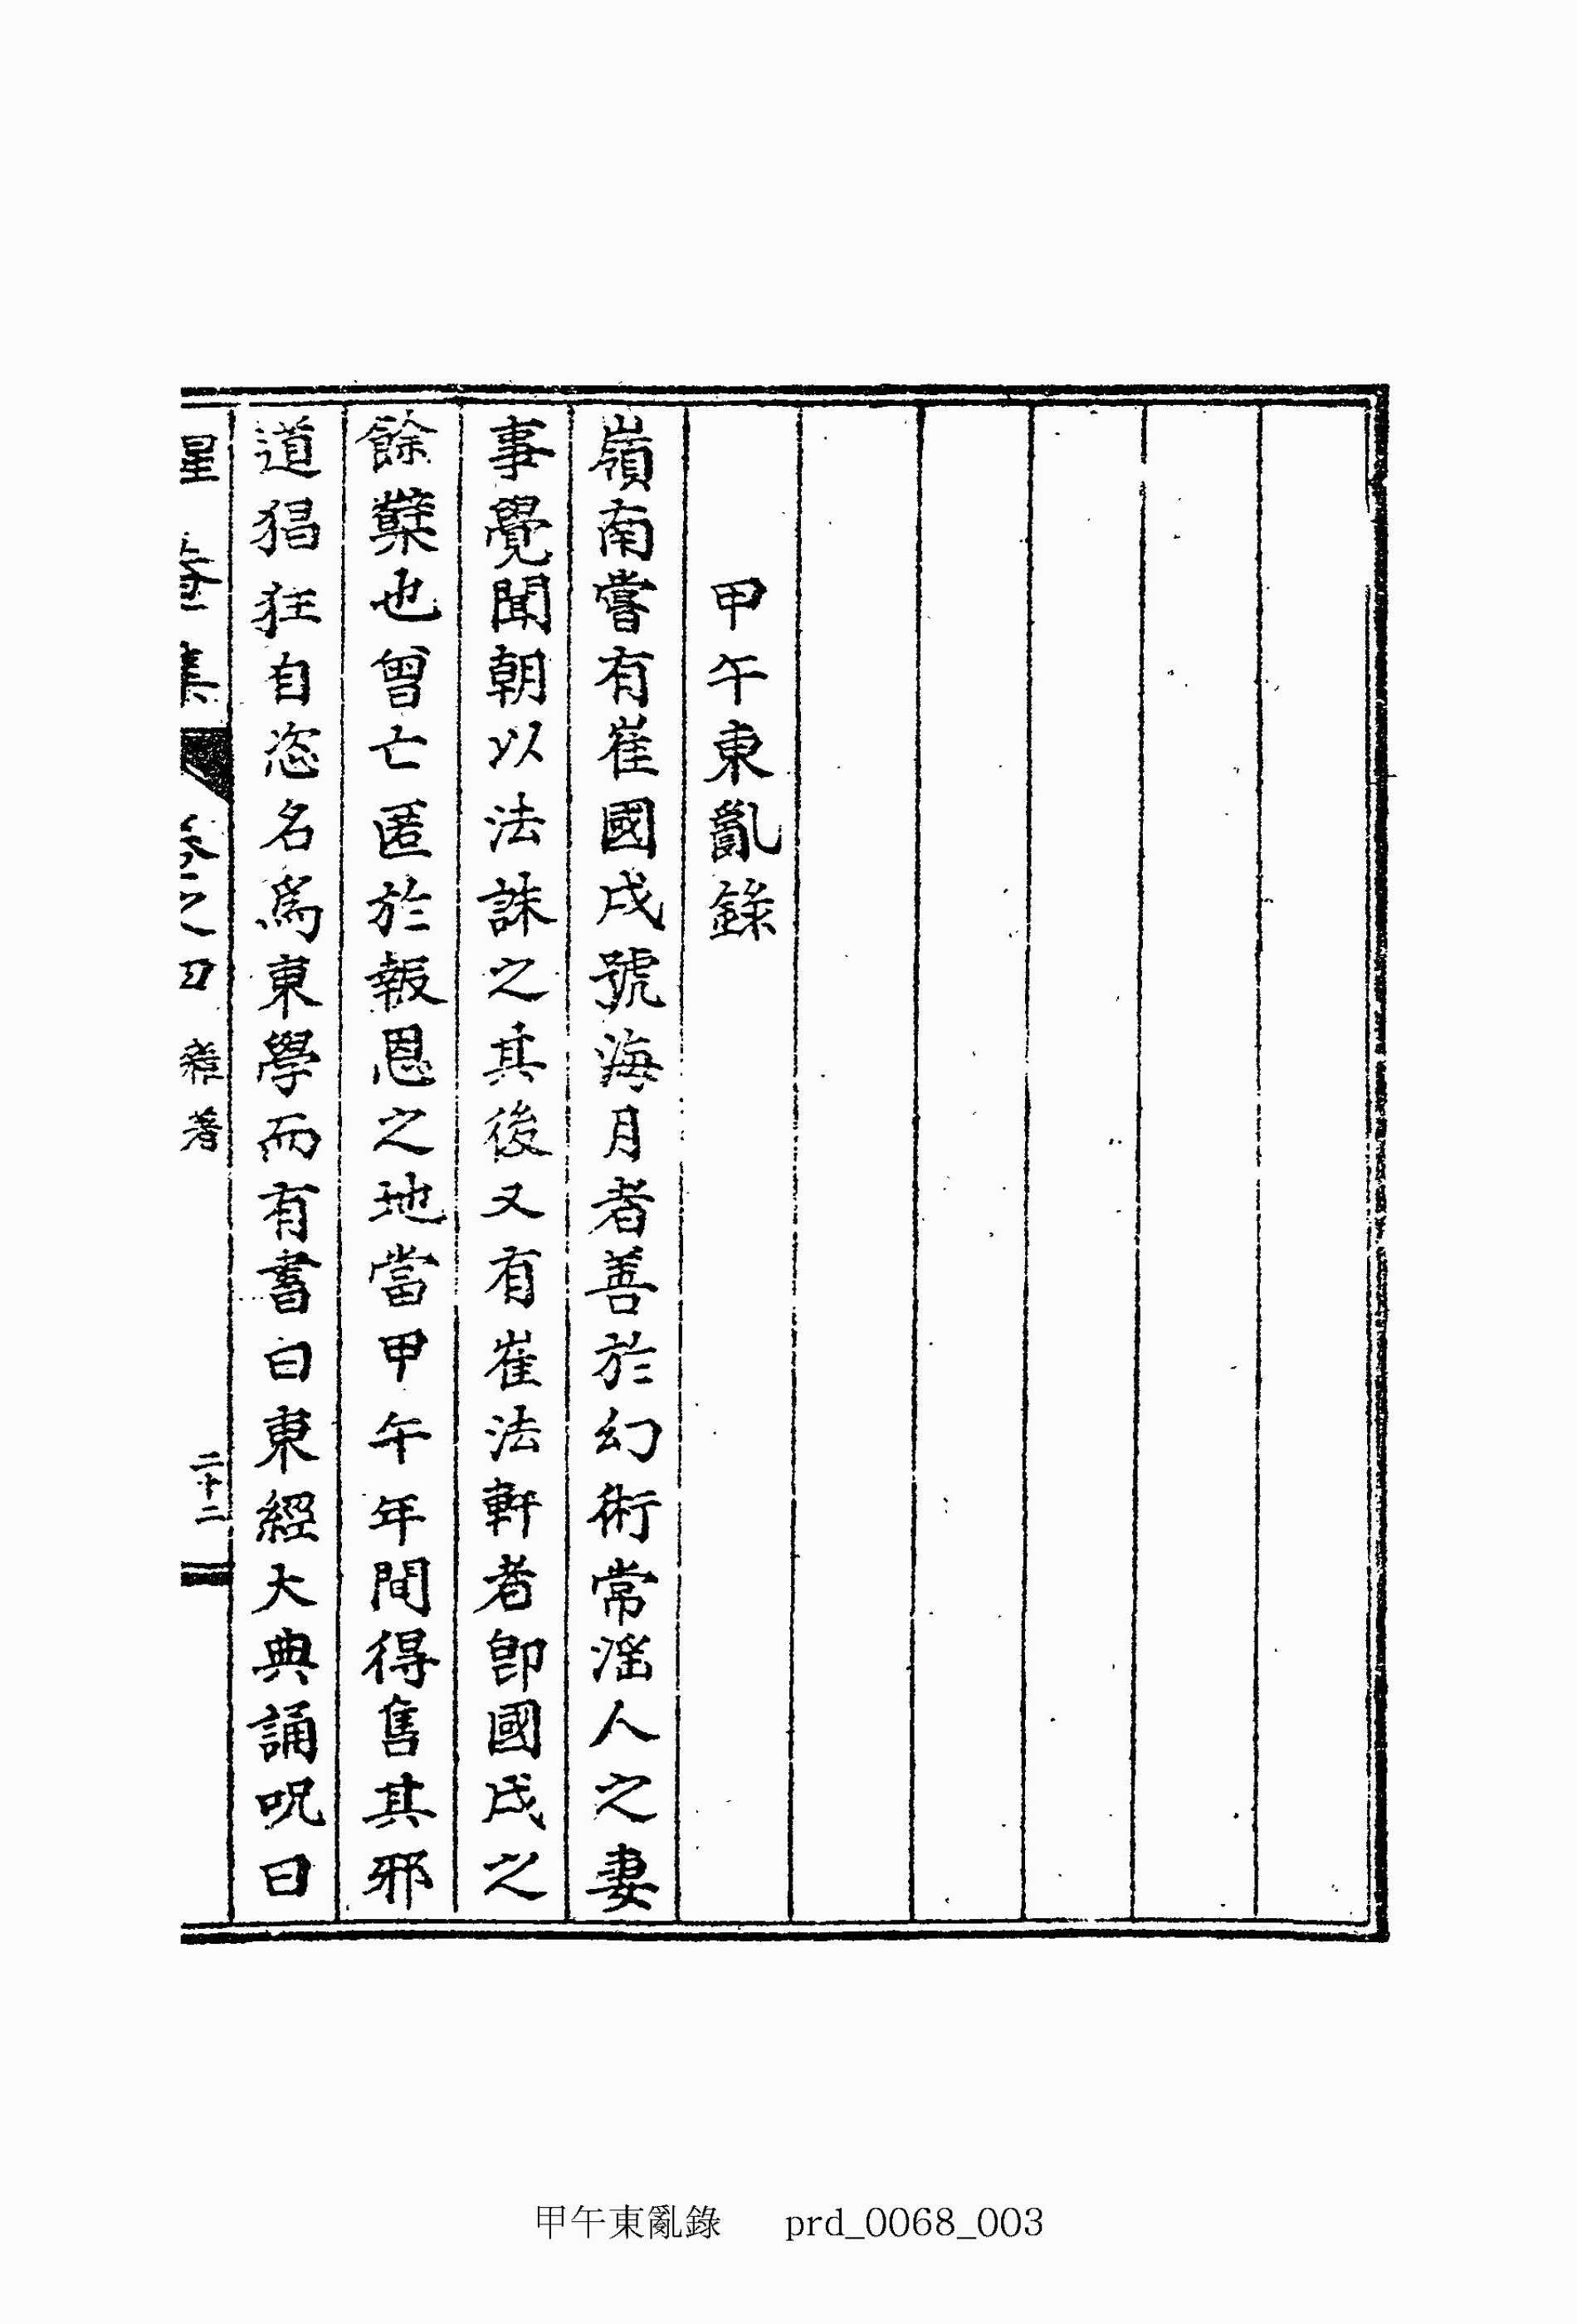 甲午東亂錄
嶺南嘗有崔國戌號海月者善於幻術常滛人之妻
事覺聞朝以法誅之其後又有崔法軒者卽國戌之
餘櫱也曾亡匿於報恩之地當甲午年間得售其邪
道猖狂自恣名爲東學而有書曰東經大典誦呪曰
集 卷之 雜著 二十二
甲午東亂錄 prd_0068_003